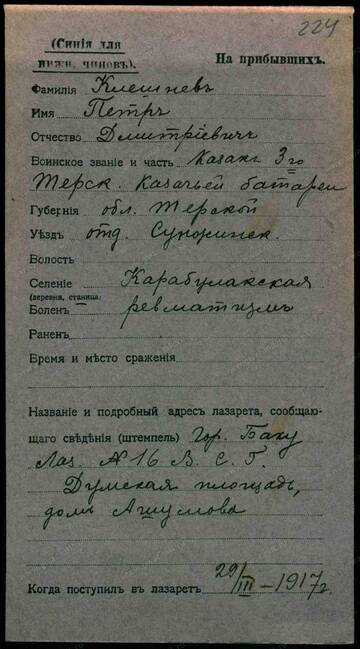 224
(Синія для
нижн. чиновъ).
На прибывшихъ.
Фамилія Клешневъ
Имя Петръ
Отчество Дмитріевичъ
Воинское званіе и часть Казакъ 3го
Терск. Казачьей батареи
Губернія обл. Терской
Уѣздъ отд. Сунженск.
Волость
Селеніе Карабулакская
(деревня, станица)
Боленъ ревматизмъ
Раненъ
Время и мѣсто сраженія
Названіе и подробный адресъ лазарета, сообщаю-
щаго свѣдѣнія (штемпель) Гор. Баку
Лаз. № 16 В. С. Г.
Думская площадь,
домъ Ашумова
Когда поступилъ въ лазаретъ 29/III – 1917 г.